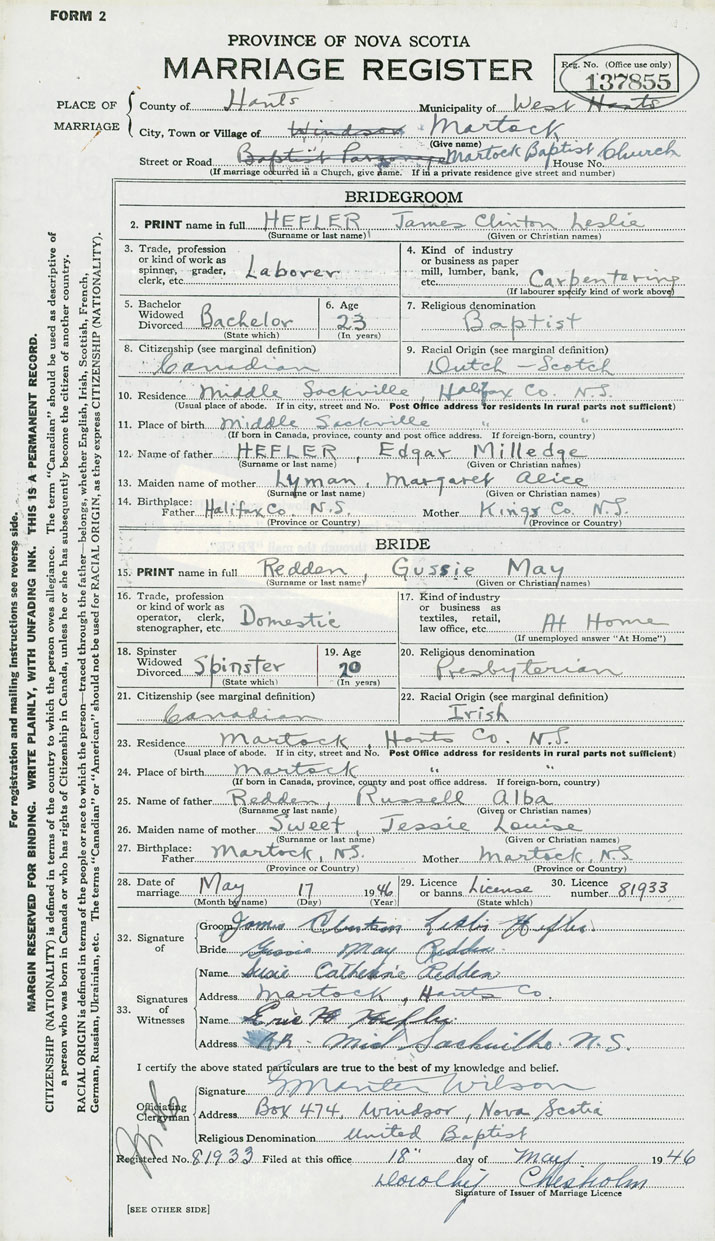 FORM 2
PROVINCE OF NOVA SCOTIA
MARRIAGE REGISTER
Reg. No. (Office use only)
137855
PLACE OF MARRIAGE
County of Hants Municipality of West Hants
City, Town or Village of Windsor Martock
(Give name)
Street or Road Baptist Parsonage Martock Baptist Church House No.
(If marriage occurred in a Church, give name. If in a private residence give street and number)
BRIDEGROOM
2. PRINT name in full HEFLER James Clinton Leslie
(Surname or last name) (Given or Christian names)
3. Trade, profession or kind of work as spinner, grader, clerk, etc. Laborer
4. Kind of industry or business as paper mill, lumber, bank, etc. Carpentering
(If labourer specify kind of work above)
5. Bachelor Widowed Divorced Bachelor
(State which)
6. Age 23
(In years)
7. Religious denomination
Baptist
8. Citizenship (see marginal definition)
Canadian
9. Racial Origin (see marginal definition)
Dutch - Scotch
10. Residence Middle Sackville, Halifax Co. N.S.
(Usual place of abode. If in city, street and No. Post Office address for residents in rural parts not sufficient)
11. Place of birth Middle Sackville " "
(If born in Canada, province, county and post office address. If foreign-born, country)
12. Name of father HEFLER, Edgar Milledge
(Surname or last name) (Given or Christian names)
13. Maiden name of mother Lyman, Margaret Alice
(Surname or last name) (Given or Christian names)
14. Birthplace: Father Halifax Co. N.S. Mother Kings Co. N.S.
(Province or Country) (Province or Country)
BRIDE
15. PRINT name in full Redden, Gussie May
(Surname or last name) (Given or Christian names)
16. Trade, profession or kind of work as operator, clerk, stenographer, etc. Domestic
17. Kind of industry or business as textiles, retail, law office, etc. At Home
(If unemployed answer "At Home")
18. Spinster Widowed Divorced Spinster
(State which)
19. Age 20
(In years)
20. Religious denomination
Presbyterian
21. Citizenship (see marginal definition)
Canadian
22. Racial Origin (see marginal definition)
Irish
23. Residence Martock, Hants Co. N.S.
(Usual place of abode. If in city, street and No. Post Office address for residents in rural parts not sufficient)
24. Place of birth Martock " "
(If born in Canada, province, county and post office address. If foreign-born, country)
25. Name of father Redden, Russell Alba
(Surname or last name) (Given or Christian names)
26. Maiden name of mother Sweet, Jessie Louise
(Surname or last name) (Given or Christian names)
27. Birthplace: Father Martock, N.S. Mother Martock, N.S.
(Province or Country) (Province or Country)
28. Date of marriage May 17 1946
(Month by name) (Day) (Year)
29. Licence or banns License
(State which)
30. Licence number 81933
32. Signature of
Groom James Leslie Hefler
Bride Gussie May Redden
33. Signatures of Witnesses
Name Susie Catherine Redden
Address Martock, Hants Co.
Name Eric
Address RR Mid Sackville. N.S.
I certify the above stated particulars are true to the best of my knowledge and belief.
Officiating Clergyman
Signature Manter Wilson
Address Box 474, Windsor, Nova Scotia
Religious Denomination United Baptist
Registered No. 81933 Filed at this office 18" day of May 1946
Dorothy Chisholm
Signature of Issuer of Marriage Licence
[SEE OTHER SIDE]
For registration and mailing instructions see reverse side.
MARGIN RESERVED FOR BINDING. WRITE PLAINLY, WITH UNFADING INK. THIS IS A PERMANENT RECORD.
CITIZENSHIP (NATIONALITY) is defined in terms of the country to which the person owes allegiance. The term "Canadian" should be used as descriptive of
a person who was born in Canada or who has rights of Citizenship in Canada, unless he or she has subsequently become the citizen of another country.
RACIAL ORIGIN is defined in terms of the people or race to which the person—traced through the father—belongs, whether English, Irish, Scottish, French,
German, Russian, Ukrainian, etc. The terms "Canadian" or "American" should not be used for RACIAL ORIGIN, as they express CITIZENSHIP (NATIONALITY).